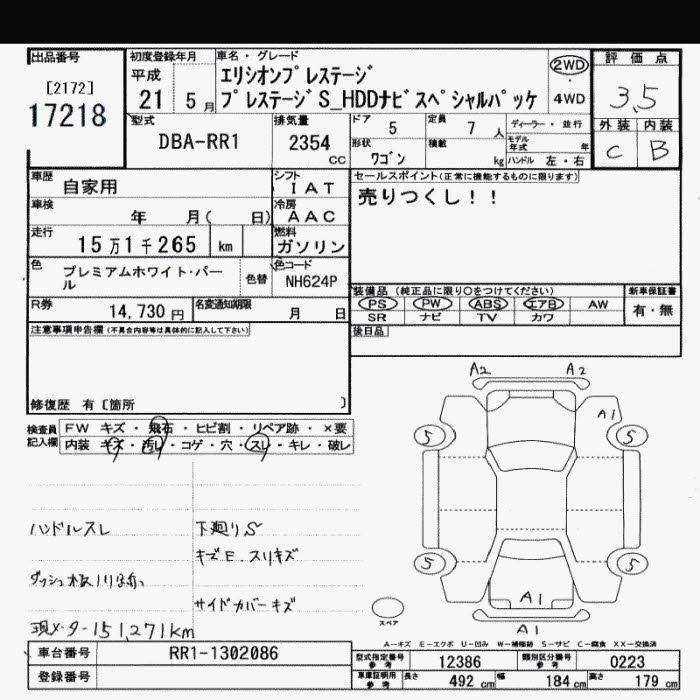 出品番号
[2172]
17218
初度登録年月
平成
21 5月
車名・グレード
エリシオンプレステージ
プレステージS_HDDナビスペシャルパッケ
2WD
・
4WD
評価点
3.5
外装 内装
C B
型式
DBA-RR1
排気量
2354
CC
ドア 5
定員 7 人
ディーラー・並行
モデル年式 年
形状 ワゴン
積載 kg
ハンドル 左・右
車歴 自家用
シフト IAT
車検 年 月( 日)
冷房 AAC
走行 15万1千265 km
燃料 ガソリン
色 プレミアムホワイト・パール
色替
色コード NH624P
R券 14,730円
名変通知期限 月 日
セールスポイント(正常に機能するものに限ります)
売りつくし!!
装備品(純正品に限り○をつけてください)
PS PW ABS エアB AW
SR ナビ TV カワ
新車保証書
有・無
後日品
注意事項申告欄(不具合内容等は具体的に記入して下さい)
修復歴 有〔箇所 〕
検査員記入欄
FW キズ・飛石・ヒビ割・リペア跡・×要
内装 キズ・汚レ・コゲ・穴・スレ・キレ・破レ
ハンドルスレ
下廻りS
キズE.スリキズ
サイドカバーキズ
現メーター151,271km
A2 A2
A1
5 5
5 5
A1
A1
スペア
A-キズ E-エクボ U-凹み W-補修跡 S-サビ C-腐食 XX-交換済
車台番号 RR1-1302086
登録番号
型式指定番号参考 12386
類別区分番号参考 0223
車庫証明用参考 長さ 492 cm 幅 184 cm 高さ 179 cm